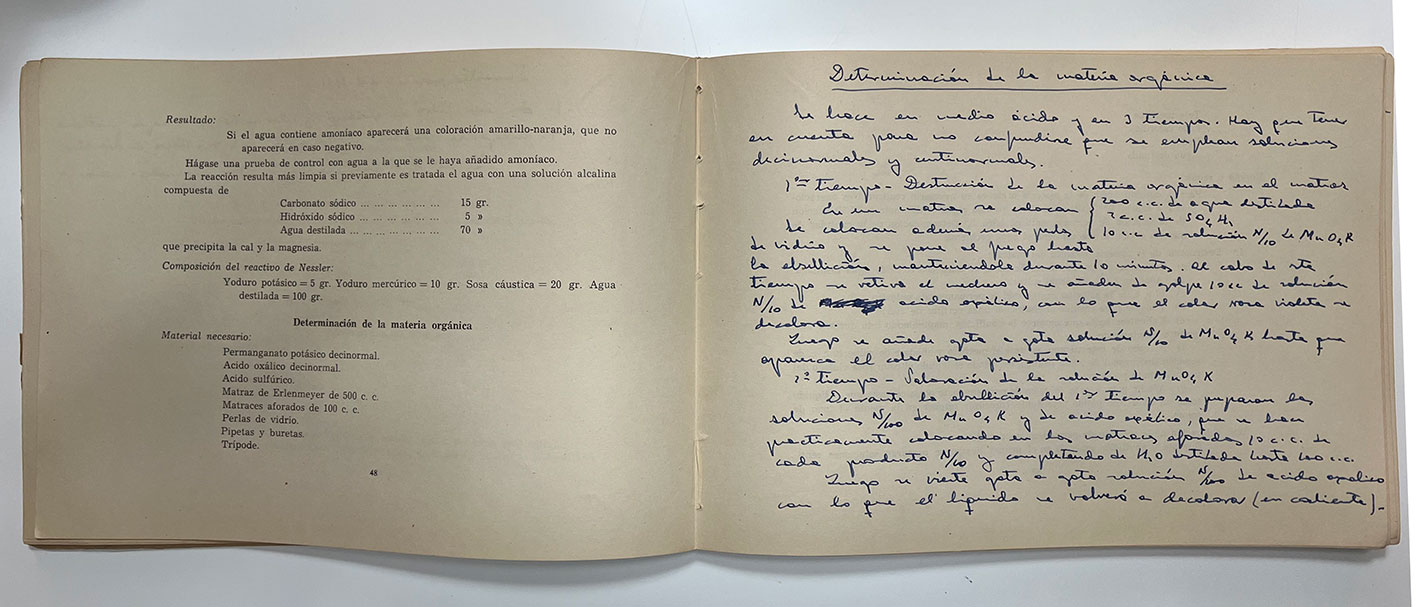 Resultado:
Si el agua contiene amoníaco aparecerá una coloración amarillo-naranja, que no
aparecerá en caso negativo.
Hágase una prueba de control con agua a la que se le haya añadido amoníaco.
La reacción resulta más limpia si previamente es tratada el agua con una solución alcalina
compuesta de
Carbonato sódico ... ... ... ... ... ... 15 gr.
Hidróxido sódico ... ... ... ... ... ... 5 »
Agua destilada ... ... ... ... ... ... ... 70 »
que precipita la cal y la magnesia.
Composición del reactivo de Nessler:
Yoduro potásico = 5 gr. Yoduro mercúrico = 10 gr. Sosa cáustica = 20 gr. Agua
destilada = 100 gr.
Determinación de la materia orgánica
Material necesario:
Permanganato potásico decinormal.
Acido oxálico decinormal.
Acido sulfúrico.
Matraz de Erlenmeyer de 500 c. c.
Matraces aforados de 100 c. c.
Perlas de vidrio.
Pipetas y buretas.
Trípode.
48
Determinación de la materia orgánica
Se hace en medio ácido y en 3 tiempos. Hay que tener
en cuenta para no confundirse que se emplean soluciones
decinormales y centinormales.
1er tiempo - Destrucción de la materia orgánica en el matraz
En un matraz se colocan { 200 c.c. de agua destilada
2 c.c. de SO4H2
10 c.c. de solución N/10 de MnO4K
Se colocan además unas perlas
de vidrio y se pone al fuego hasta
la ebullición, manteniéndola durante 10 minutos. Al cabo de este
tiempo se retira el mechero y se añaden de golpe 10 cc de solución
N/10 de acido oxálico, con lo que el color rosa violeta se
decolora.
Luego se añade gota a gota solución N/10 de MnO4K hasta que
aparezca el color rosa persistente.
2º tiempo - Valoración de la solución de MnO4K
Durante la ebullición del 1er tiempo se preparan las
soluciones N/100 de MnO4K y de acido oxálico, que se hacen
practicamente colocando en los matraces aforados 10 c.c. de
cada producto N/10 y completando de H2O destilada hasta 100 c.c.
Luego se vierte gota a gota solución N/100 de acido oxalico
con lo que el líquido se volverá a decolorar (en caliente).-